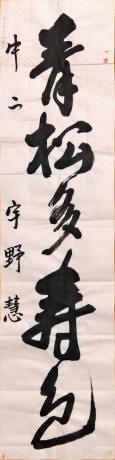 青松多寿色
中二 宇野慧